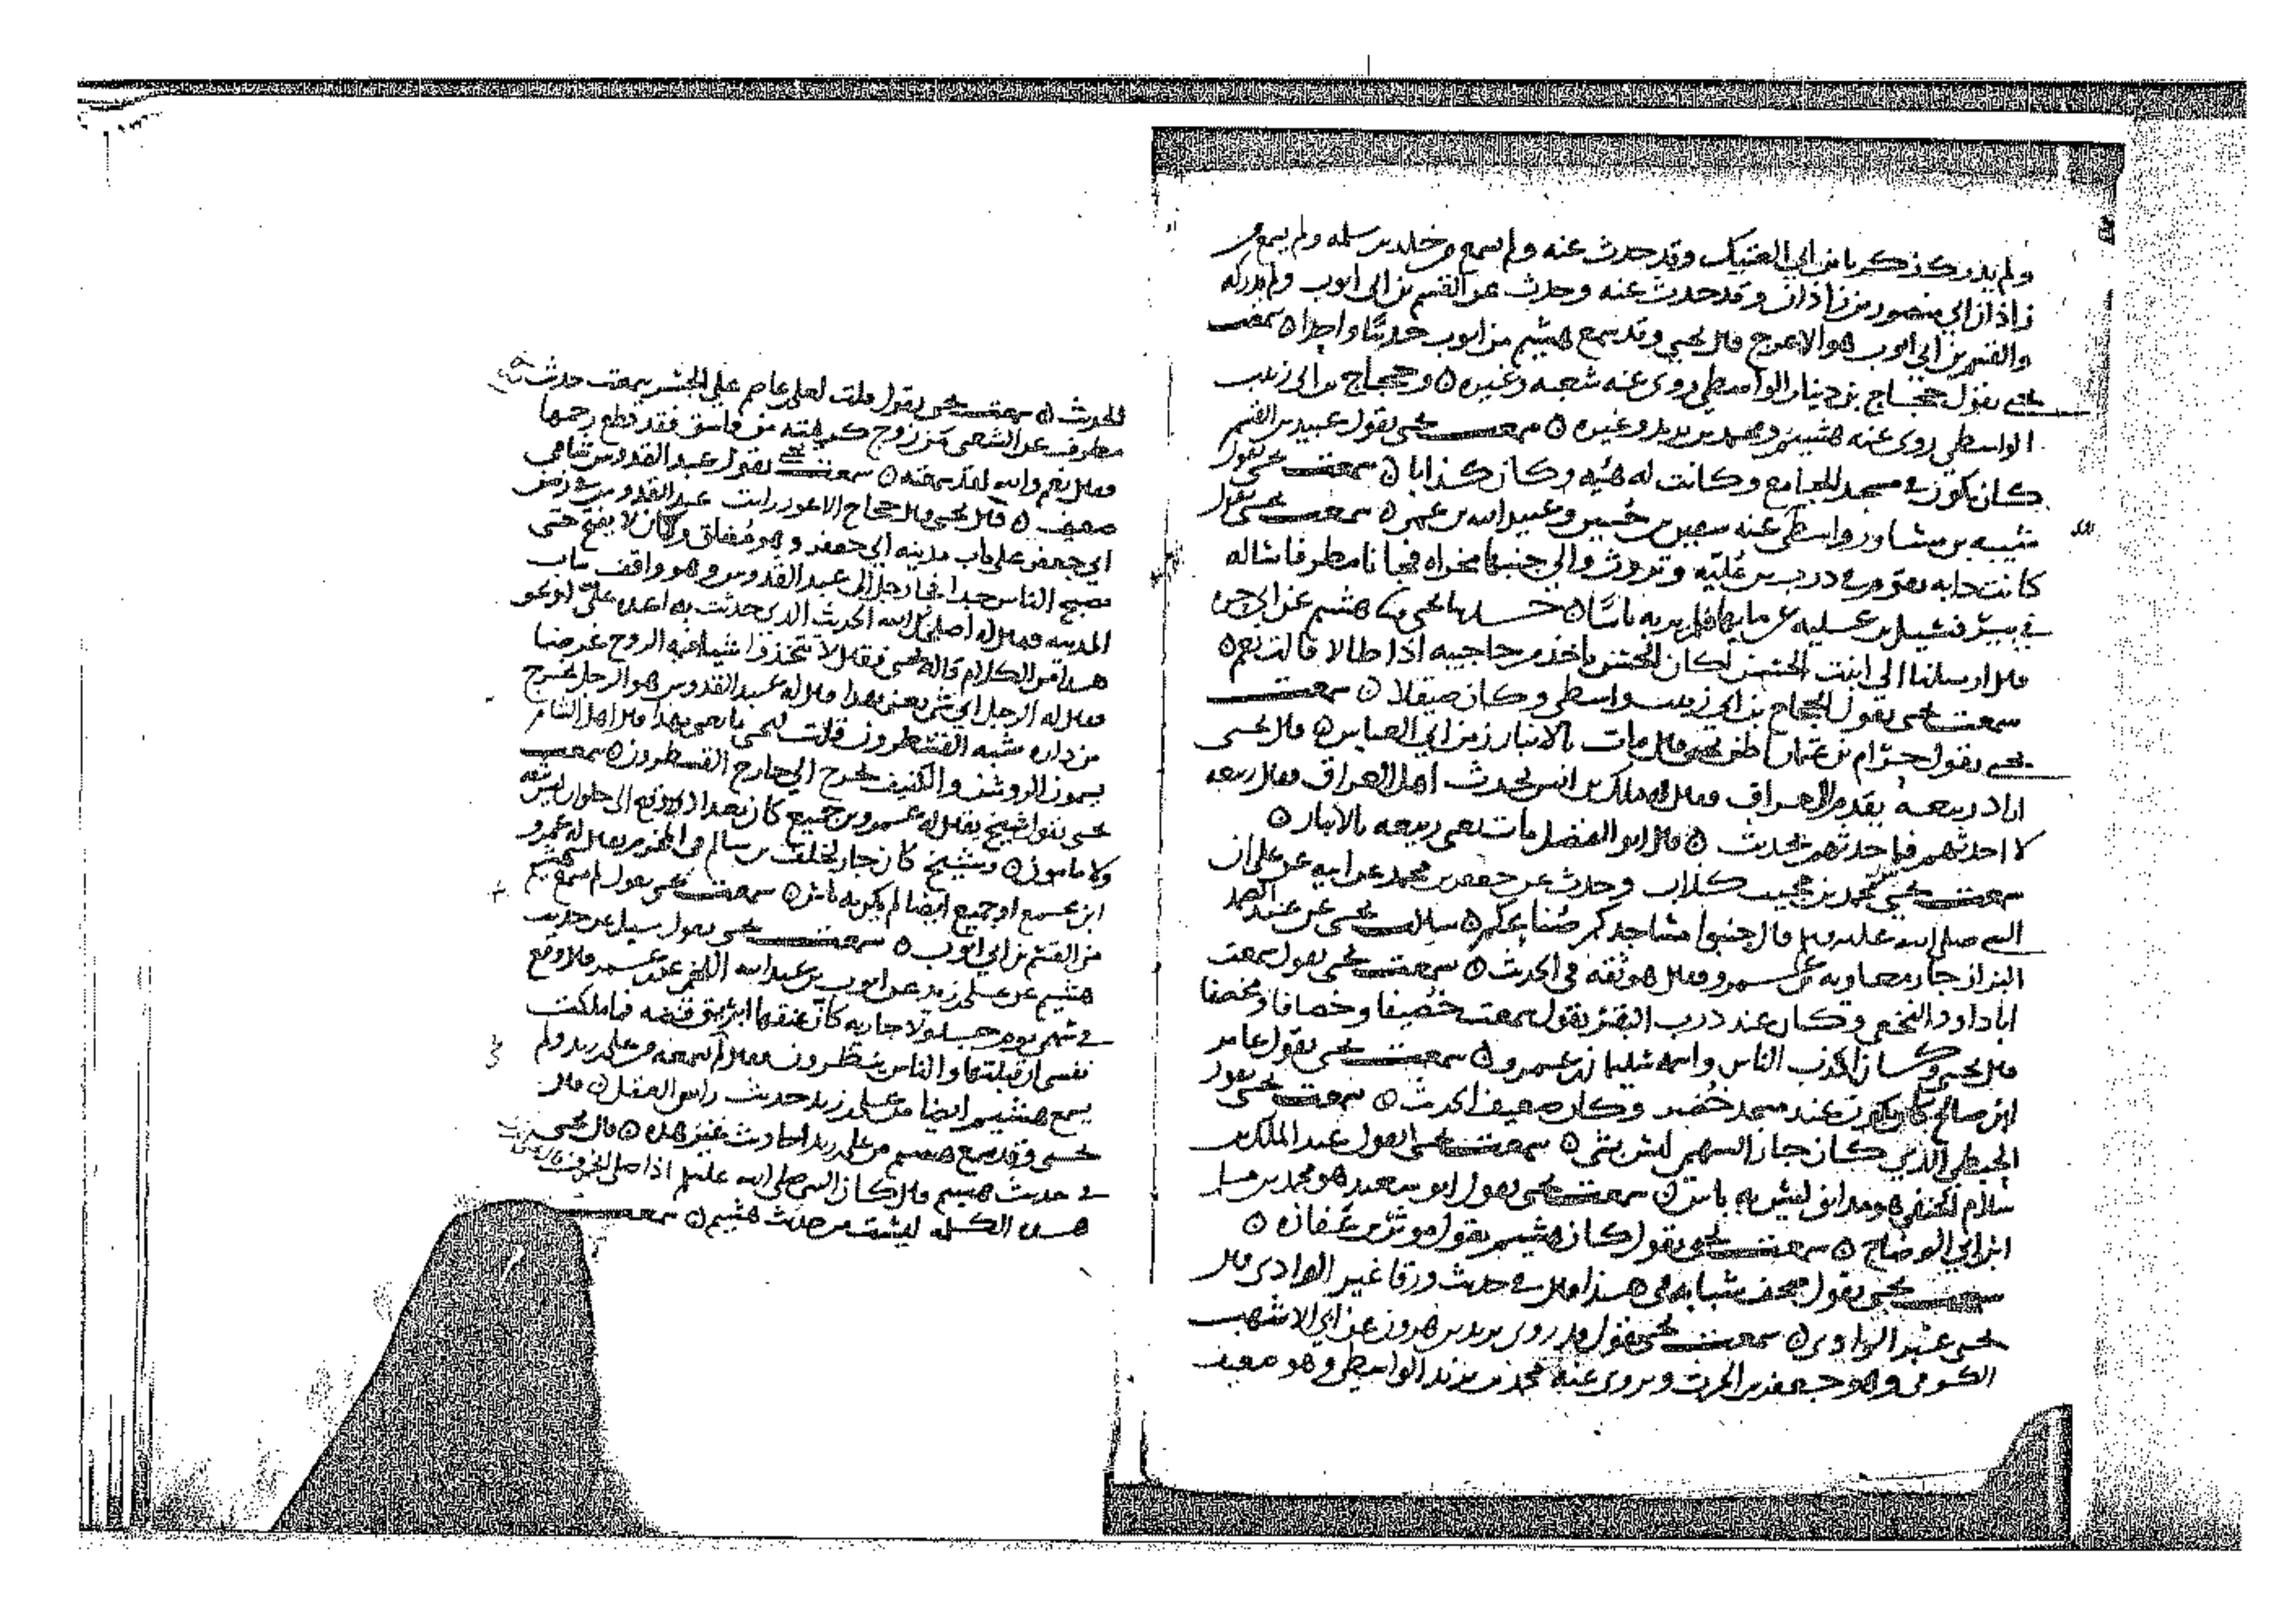 ولم يدرك زكريا بن ابي العتيك وقد حدث عنه ولم يسمع من خلد بن سلمه ولم يسمع من
زاذان ابي منصور بن زاذان وقد حدث عنه وحدث عن القسم بن ابي ايوب ولم يدركه
والقسم بن ابي ايوب هو الاعرج قال يحيى وقد سمع هشيم من ايوب حديثا واحدا ه سمعت
يحيى يقول حجاج بن دينار الواسطي روى عنه شعبه وغيره ه وحجاج بن ابي زينب
الواسطي روى عنه هشيم ومحمد بن يزيد وغيره ه سمعت يحيى يقول عبيد بن القسم
كان يكون في مسجد الجامع وكانت له هيئه وكان كذابا ه سمعت يحيى يقول
شيبه بن مساور واسطي عنه سفين بن حسين وعبيد الله بن عمر ه سمعت يحيى يقول
كانت دابه تقوم في درب بن عليه وتروث والى جنبها مخراه فجانا مطر فاساله
في بير فسئل بن عليه عن مايها فلم ير به باسا ه حدثنا يحيى هشيم عن ابي حره
قال ارسلنا الى ابنت الحسن اكان الحسن ياخذ من حاجبيه اذا طالا قالت نعم ه
سمعت يحيى يقول الحجاج بن ابي زينب واسطي وكان صيقلا ه سمعت
يحيى يقول حرام بن عثمان اظن يحيى قال مات بالانبار زمن ابي العباس ه قال يحيى
اراد ربيعه يقدم العراق فقال له ملك بن انس تحدث اهل العراق فقال ربيعه
لا احدثهم فما حدثهم بحديث ه قال ابو الفضل مات يعني ربيعه بالانبار ه
سمعت يحيى محمد بن مجيب كذاب وحدث عن جعفر بن محمد عن ابيه عن علي ان
النبي صلى الله عليه وسلم قال جنبوا مساجدكم صناعكم ه سئلت يحيى عن عبد الصمد
البزاز جار معاويه بن عمرو فقال هو ثقه في الحديث ه سمعت يحيى يقول سمعت
ابا داود النخعي وكان عند درب البقر يقول سمعت خصيفا وخصافا ومخصفا
قال يحيى وكان اكذب الناس واسمه سليمان بن عمرو ه سمعت يحيى يقول عامر
ابن صالح كان يكون عند مسجد خضير وكان ضعيف الحديث ه سمعت يحيى يقول
الحبطي الذي كان جار السهمي ليس بشي ه سمعت يحيى يقول عبد الملك بن
سلام الحنفي هو مدايني ليس به باس ه سمعت يحيى يقول ابو سعيد هو محمد بن مسلم
ابن ابي الوضاح ه سمعت يحيى يقول كان هشيم يقول موثر بن غفازه ه
سمعت يحيى يقول صحف شبابه في هذا قال في حديث ورقا غير الهادي قال
يحيى عبد الهادي ه سمعت يحيى يقول قد روى يزيد بن هرون عن ابي الاشهب
الكوفي وهو جعفر بن الحرث ويروي عنه محمد بن يزيد الواسطي وهو ضعيف
الحديث ه سمعت يحيى يقول قلت لعلي بن عاصم على الجسر سمعت حديث
مطرف عن الشعبي من زوج كريمته من فاسق فقد قطع رحمها
فقال نعم والله لقد سمعته ه سمعت يحيى يقول عبد القدوس شامي
ضعيف ه قال يحيى قال حجاج الاعور رايت عبد القدوس في زمن
ابي جعفر على باب مدينه ابي جعفر وهو مغلق وكان لا يفتح حتى
يصبح الناس جدا فجا رجل الى عبد القدوس وهو واقف بباب
المدينه فقال له اصلحك الله الحديث الذي حدثت به اعده علي او نحو
هذا من الكلام قاله يحيى فقال لا تتخذوا شيا فيه الروح غرضا
فقال له الرجل اي شي يعني بهذا قال له عبد القدوس هو الرجل يخرج
من داره شبه القسطرون قلت ليحيى ما يعني بهذا قال اهل الشام
يسمون الروشن والكنيف يخرج الى خارج القسطرون ه سمعت
يحيى يقول شيخ يقال له عمرو بن جميع كان ببغداد ثم وقع الى حلوان ليس بثقه
ولا مامون ه وشيخ كان جار لخلف بن سالم في المخرم يقال له عمرو
ابن مجمع او جميع ايضا لم يكن به باس ه سمعت يحيى يقول لم يسمع هشيم
من القسم بن ابي ايوب ه سمعت يحيى يقول سئل عن حديث
هشيم عن علي بن زيد عن ايوب بن عبد الله اللخمي عن بن عمر قال وقع
في سهمي يوم جلولا جاريه كان عنقها ابريق فضه فما ملكت
نفسي ان قبلتها والناس ينظرون فقال لم يسمعه من علي بن زيد ولم
يسمع هشيم ايضا من علي بن زيد حديث راس العقل ه قال
يحيى وقد سمع هشيم من علي بن زيد احاديث غير هذه ه قال يحيى
في حديث هشيم قال كان النبي صلى الله عليه وسلم اذا صلى
هذه الكلمه ليست من حديث هشيم ه سمعت